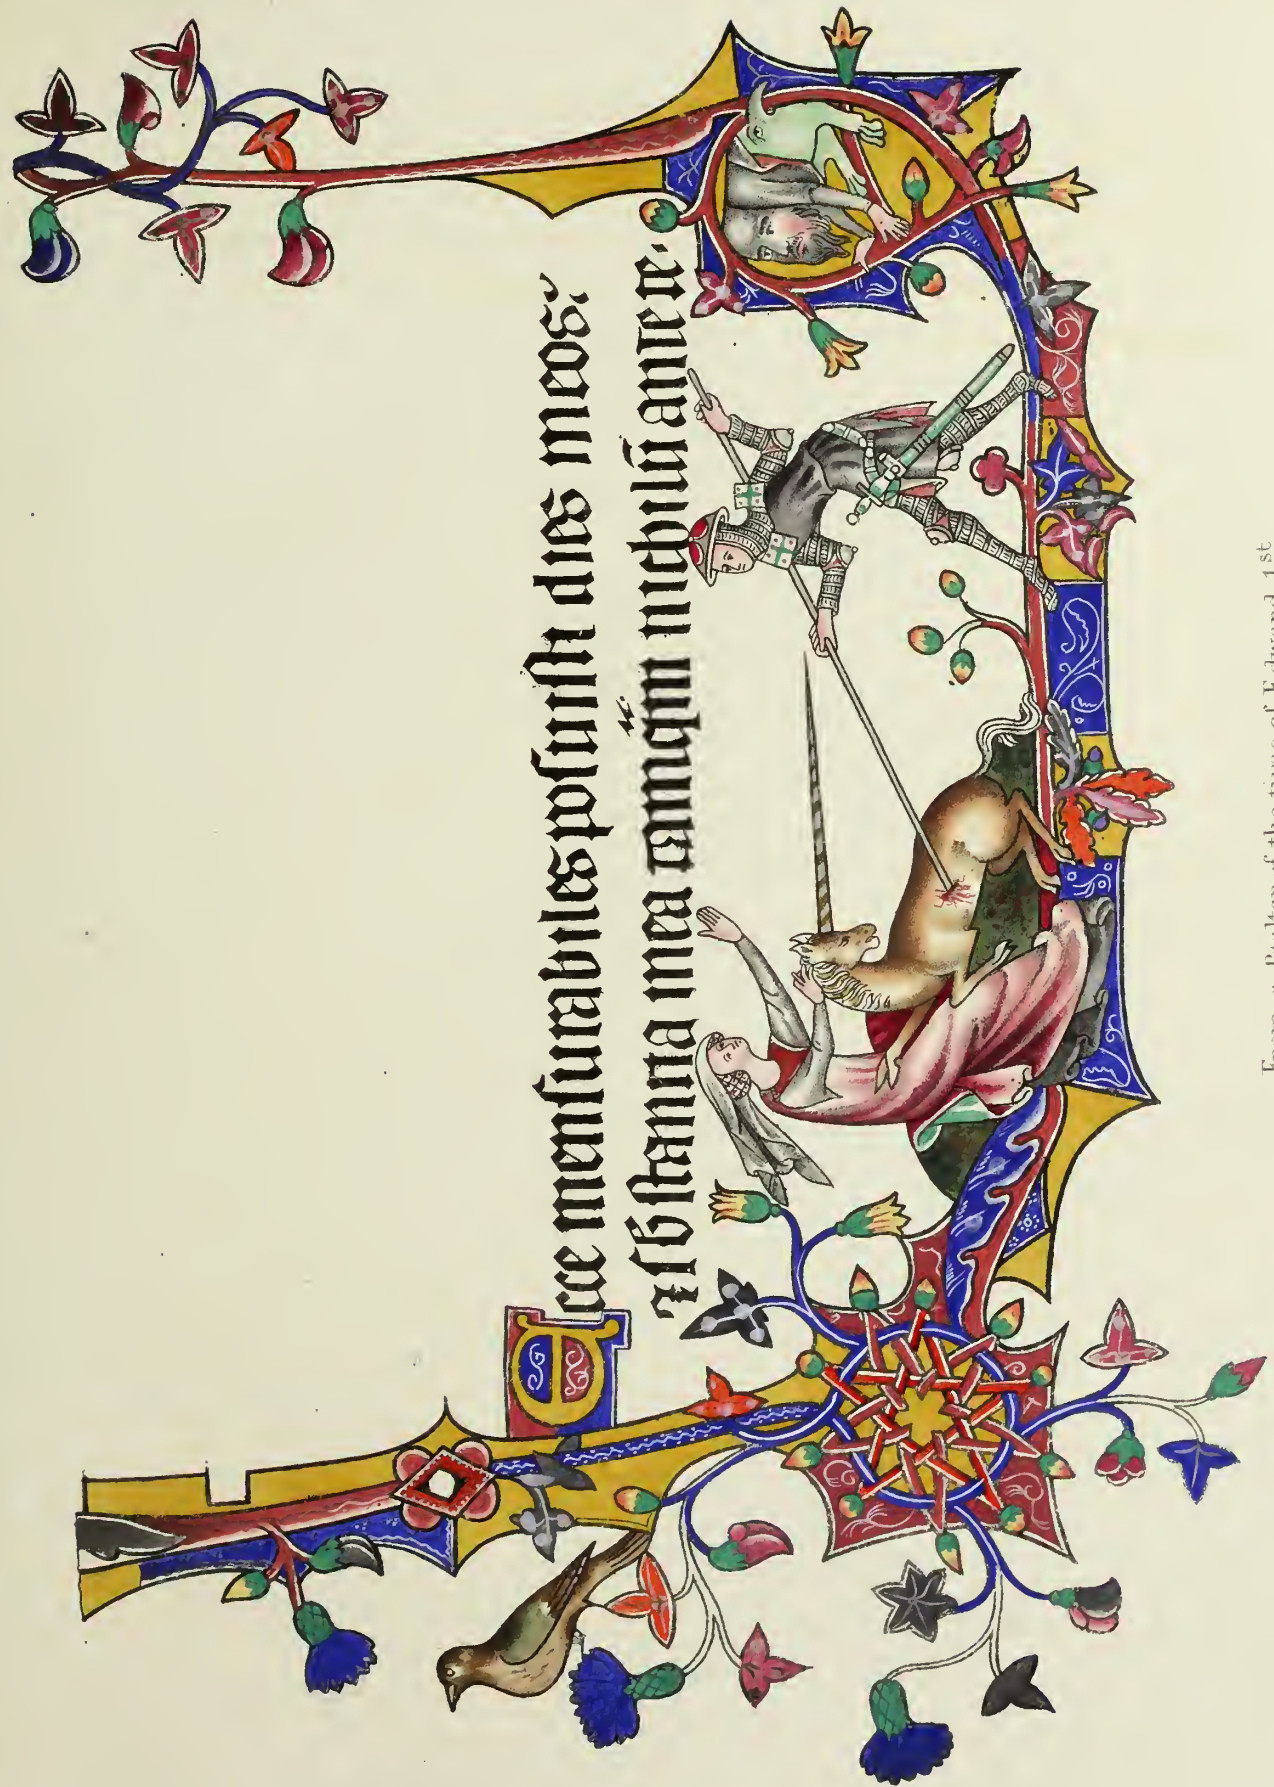 Ecce mensurabiles posuisti dies meos:
⁊ sb̄stantia mea tamq̄m nichilū ante te.
From a Psalter of the time of Edward 1st